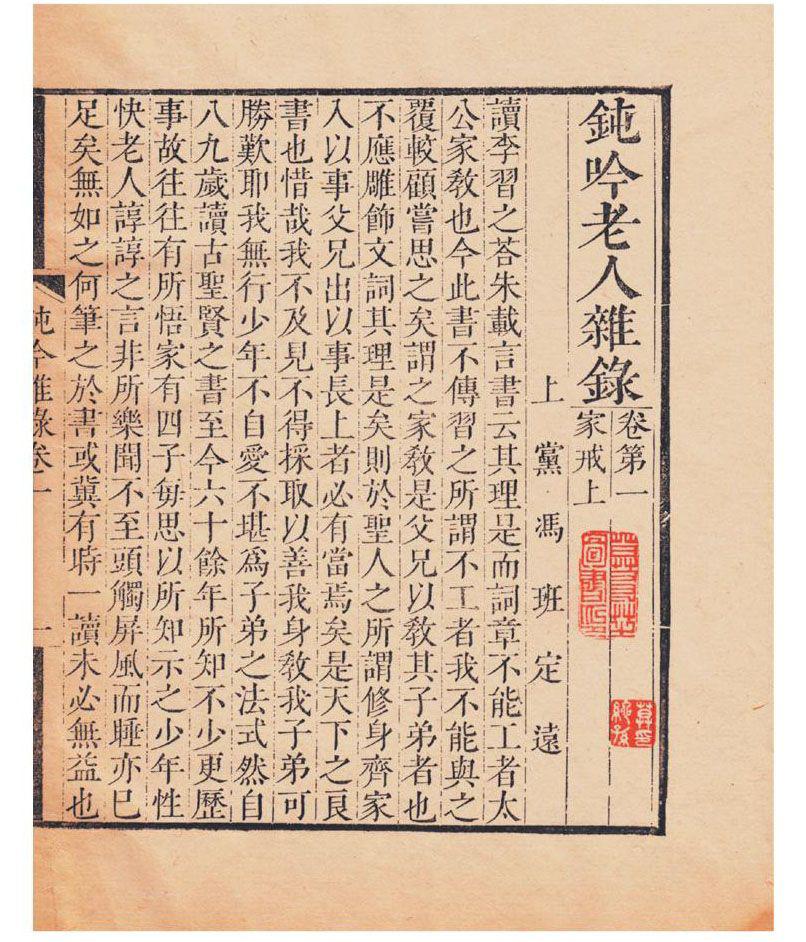 鈍吟老人雜錄
卷第一
家戒上
上黨馮班定遠
讀李習之荅朱載言書云其理是而詞章不能工者太
公家敎也今此書不傳習之所謂不工者我不能與之
覆較顧嘗思之矣謂之家敎是父兄以敎其子弟者也
不應雕飾文詞其理是矣則於聖人之所謂修身齊家
入以事父兄出以事長上者必有當焉矣是天下之良
書也惜哉我不及見不得採取以善我身敎我子弟可
勝歎耶我無行少年不自愛不堪爲子弟之法式然自
八九歲讀古聖賢之書至今六十餘年所知不少更歷
事故往往有所悟家有四子每思以所知示之少年性
快老人諄諄之言非所樂聞不至頭觸屏風而睡亦巳
足矣無如之何筆之於書或冀有時一讀未必無益也
鈍吟雜錄卷一
一